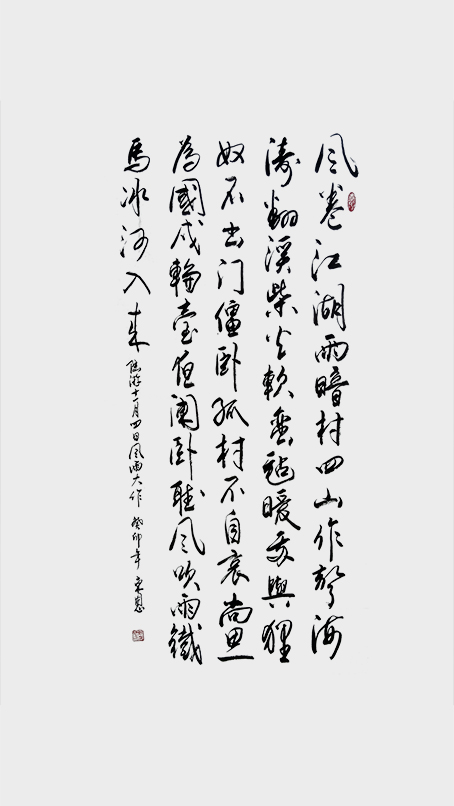 风卷江湖雨暗村四山作聲海
濤翻溪柴火軟蠻氈暖我與狸
奴不出门僵卧孤村不自哀尚思
為國戍輪臺夜闌卧聽风吹雨鐵
馬冰河入来
陸游十一月四日风雨大作 癸卯年